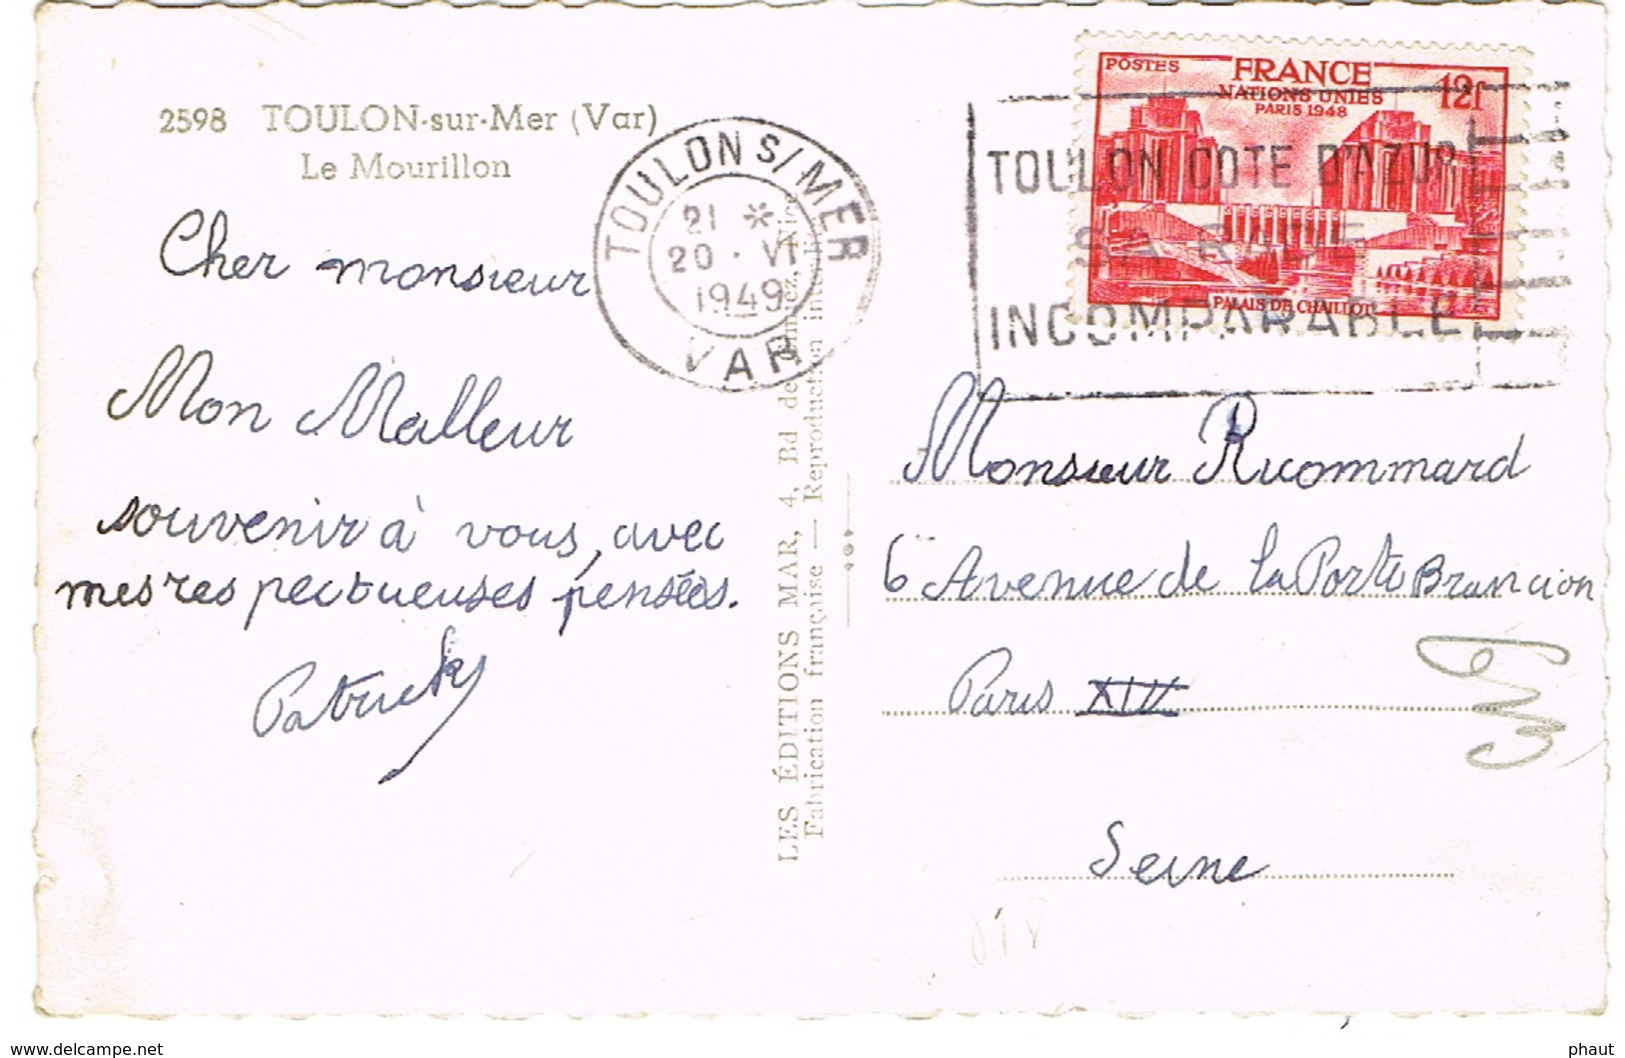 2598 TOULON-sur-Mer (Var)
Le Mourillon
Cher monsieur
Mon Malleur
souvenir à vous, avec
mes res pectueuses pensées.
Patrick
TOULON S/MER
21 *
20 · VI
1949
VAR
LES ÉDITIONS MAR, 4, Bd de
Fabrication française — Reproduction
POSTES
FRANCE
12f
NATIONS UNIES
PARIS 1948
PALAIS DE CHAILLOT
TOULON COTE D'AZUR
SA RADE
INCOMPARABLE
Monsieur Ricommard
6 Avenue de la Porte Brancion
Paris XIV
Seine
www.delcampe.net
phaut